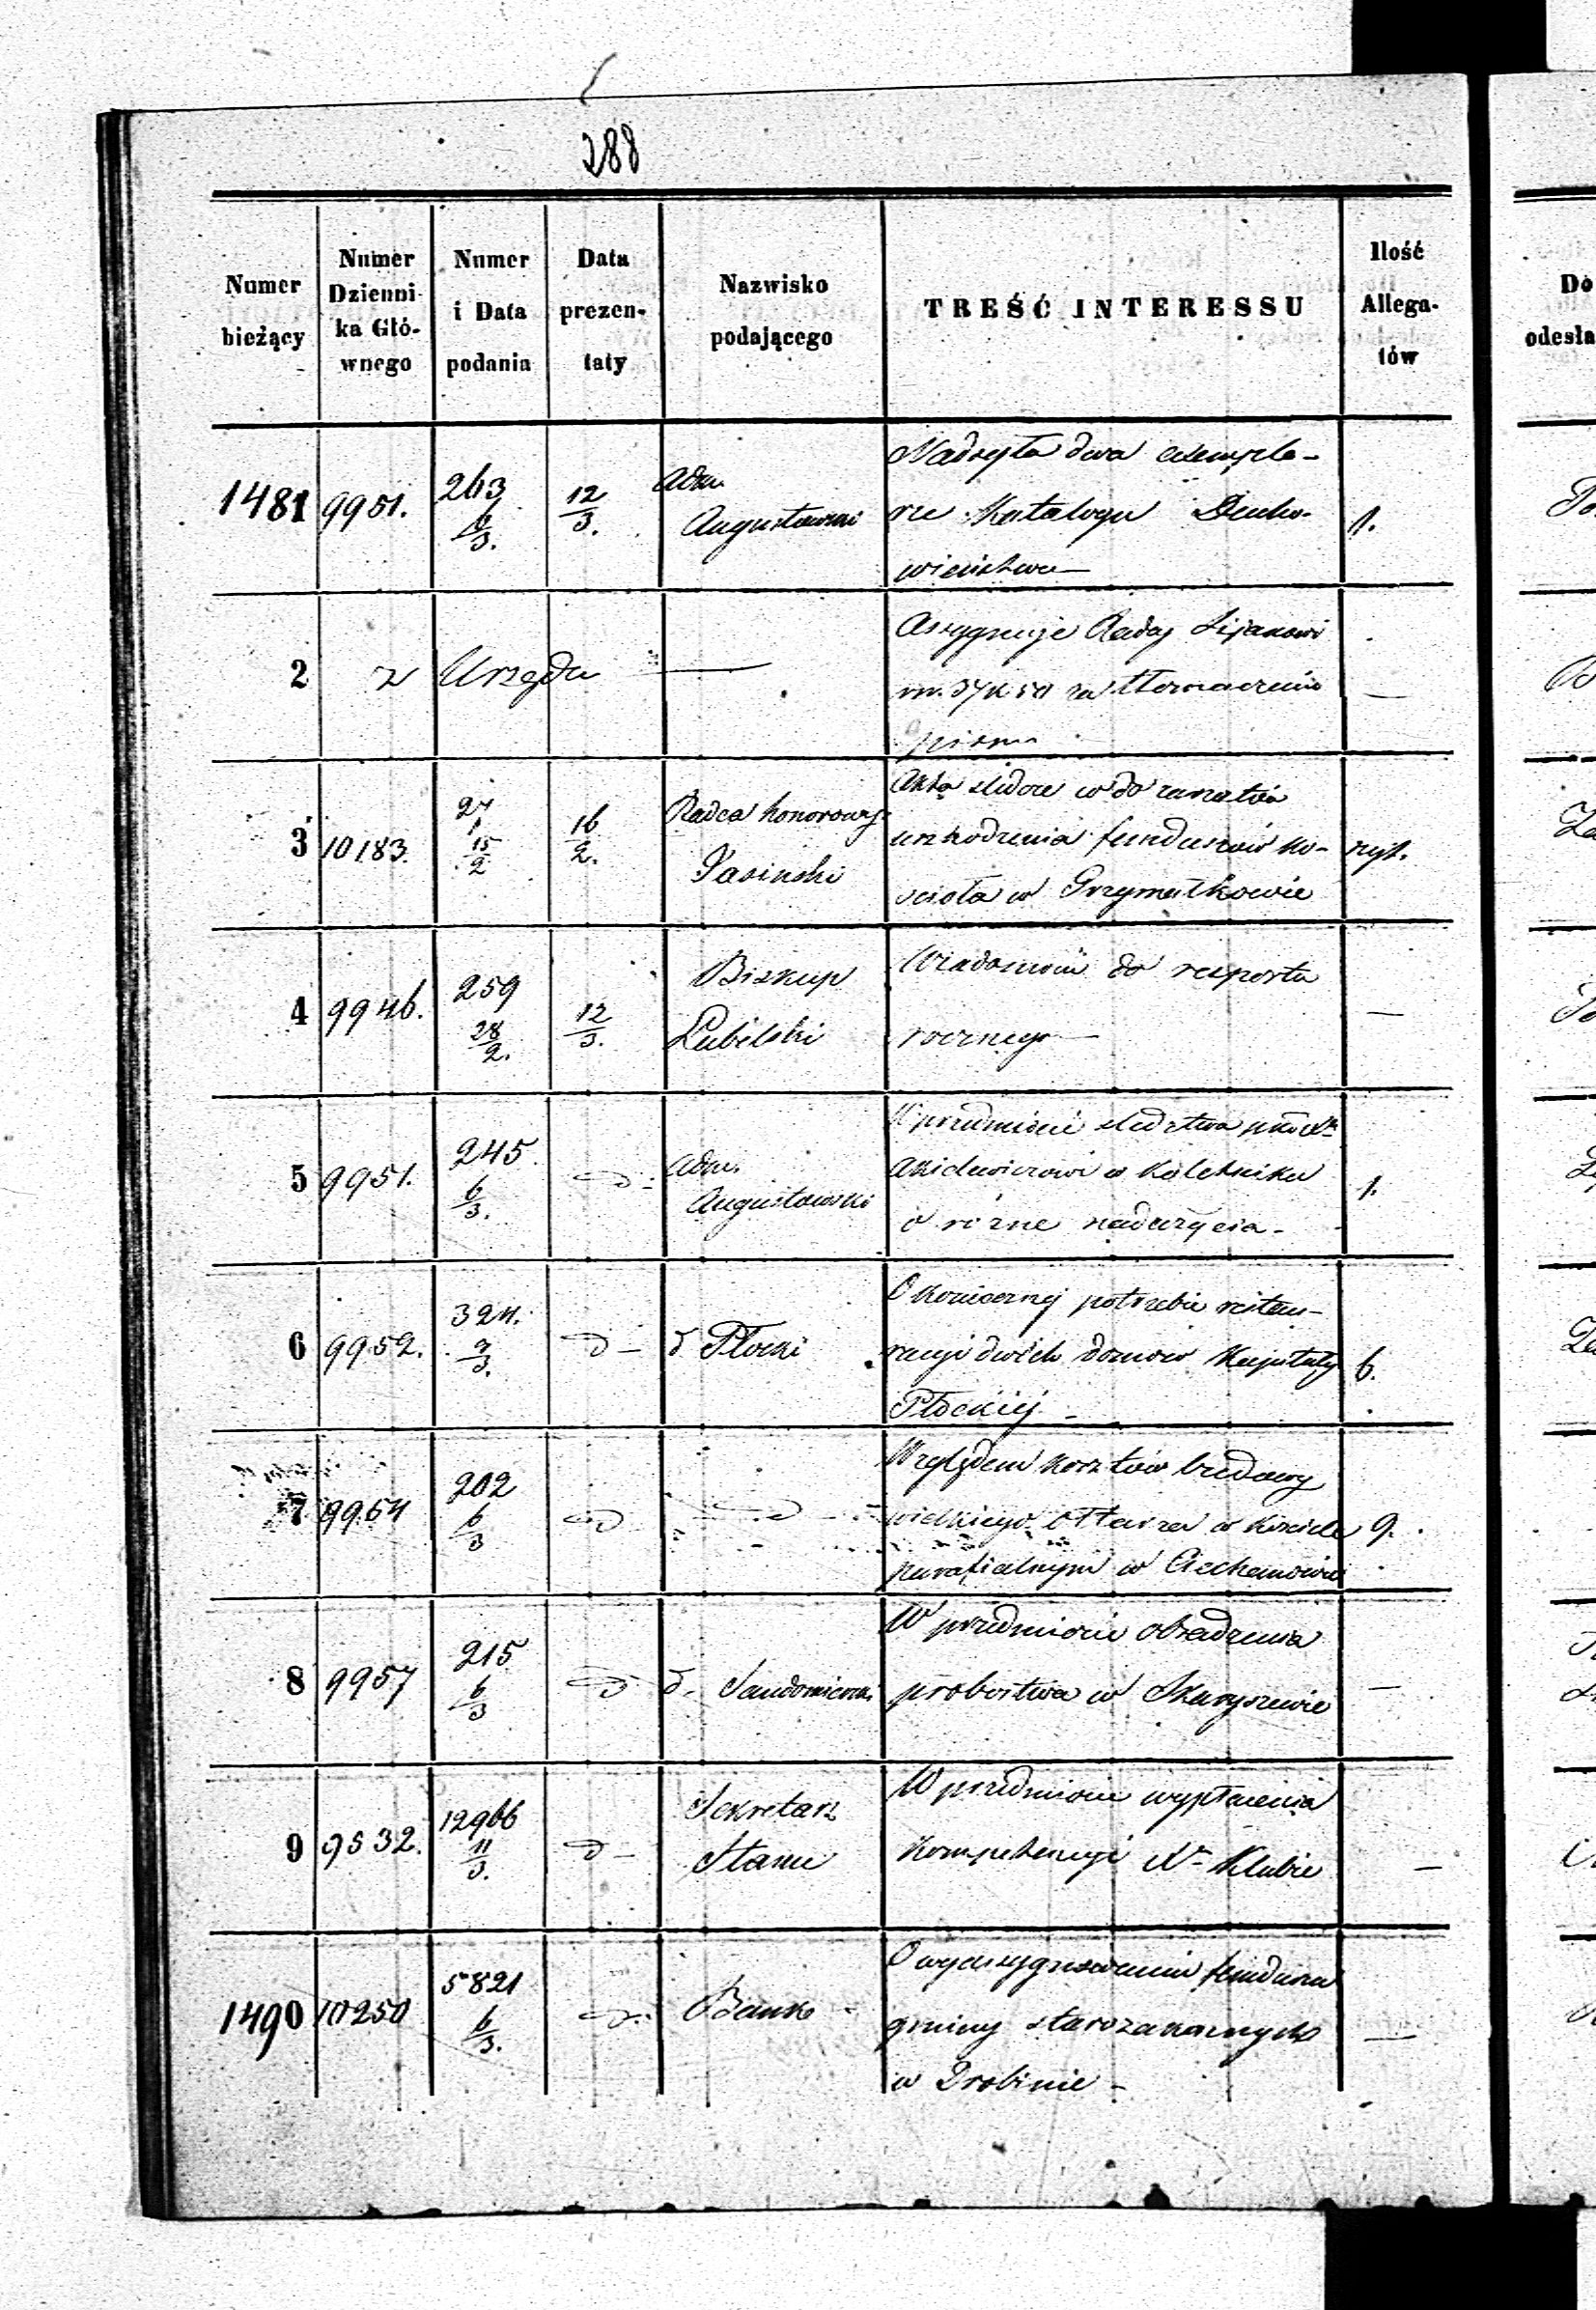 288
Numer bieżący
Numer Dzienni-ka Głó-wnego
Numer i Data podania
Data prezen-taty
Nazwisko podającego
TREŚĆ INTERESSU
Ilość Allega-tów
Do
odesła
1481 9951. 263 6/3. 12/3. Adm. Augustowski
Nadsyła dwa exempla-
rze Katalogu Ducho-
wieństwa — 1.
2 z Urzędu —
Assygnuje Radcy
za tłomaczenie
pisma —
3 10183. 27 15/2 16/2. Radca honorowy Jasinski
Akta w do zarzutów
uszkodzenia funduszów ko-
scioła w Grzymałkowie
4 9946. 259 28/2. 12/3. Biskup Lubelski
Wiadomości do raportu
rocznego — —
5 9951. 245 6/3. d Adm. Augustowski
W przedmiocie sledztwa
w Kaletniku
o rózne nadużycia - 1.
6 9952. 324. 7/3. d - d Płocki
O koniecznej potrzebie restau-
racyi dwóch domów Kapituły 6.
Płockiéj -
7 9954 202 6/3 d d
Względem kosztów budowy
wielkiego ołtarza w kościele 9.
parafialnym w Ciechanowie
8 9957 215 6/3 d d. Sandomierski
W przedmiocie obsadzenia
probostwa w Skaryszewie —
9 9532. 12966 11/3. d - Sekretarz Stanu
W przedmiocie wypłacenia
kompetencyi Xr Klubie —
1490 10250 5821 6/3. d. Bank
O wyassygnowanie fundusza
gminy starozakonnych —
w Drobinie -